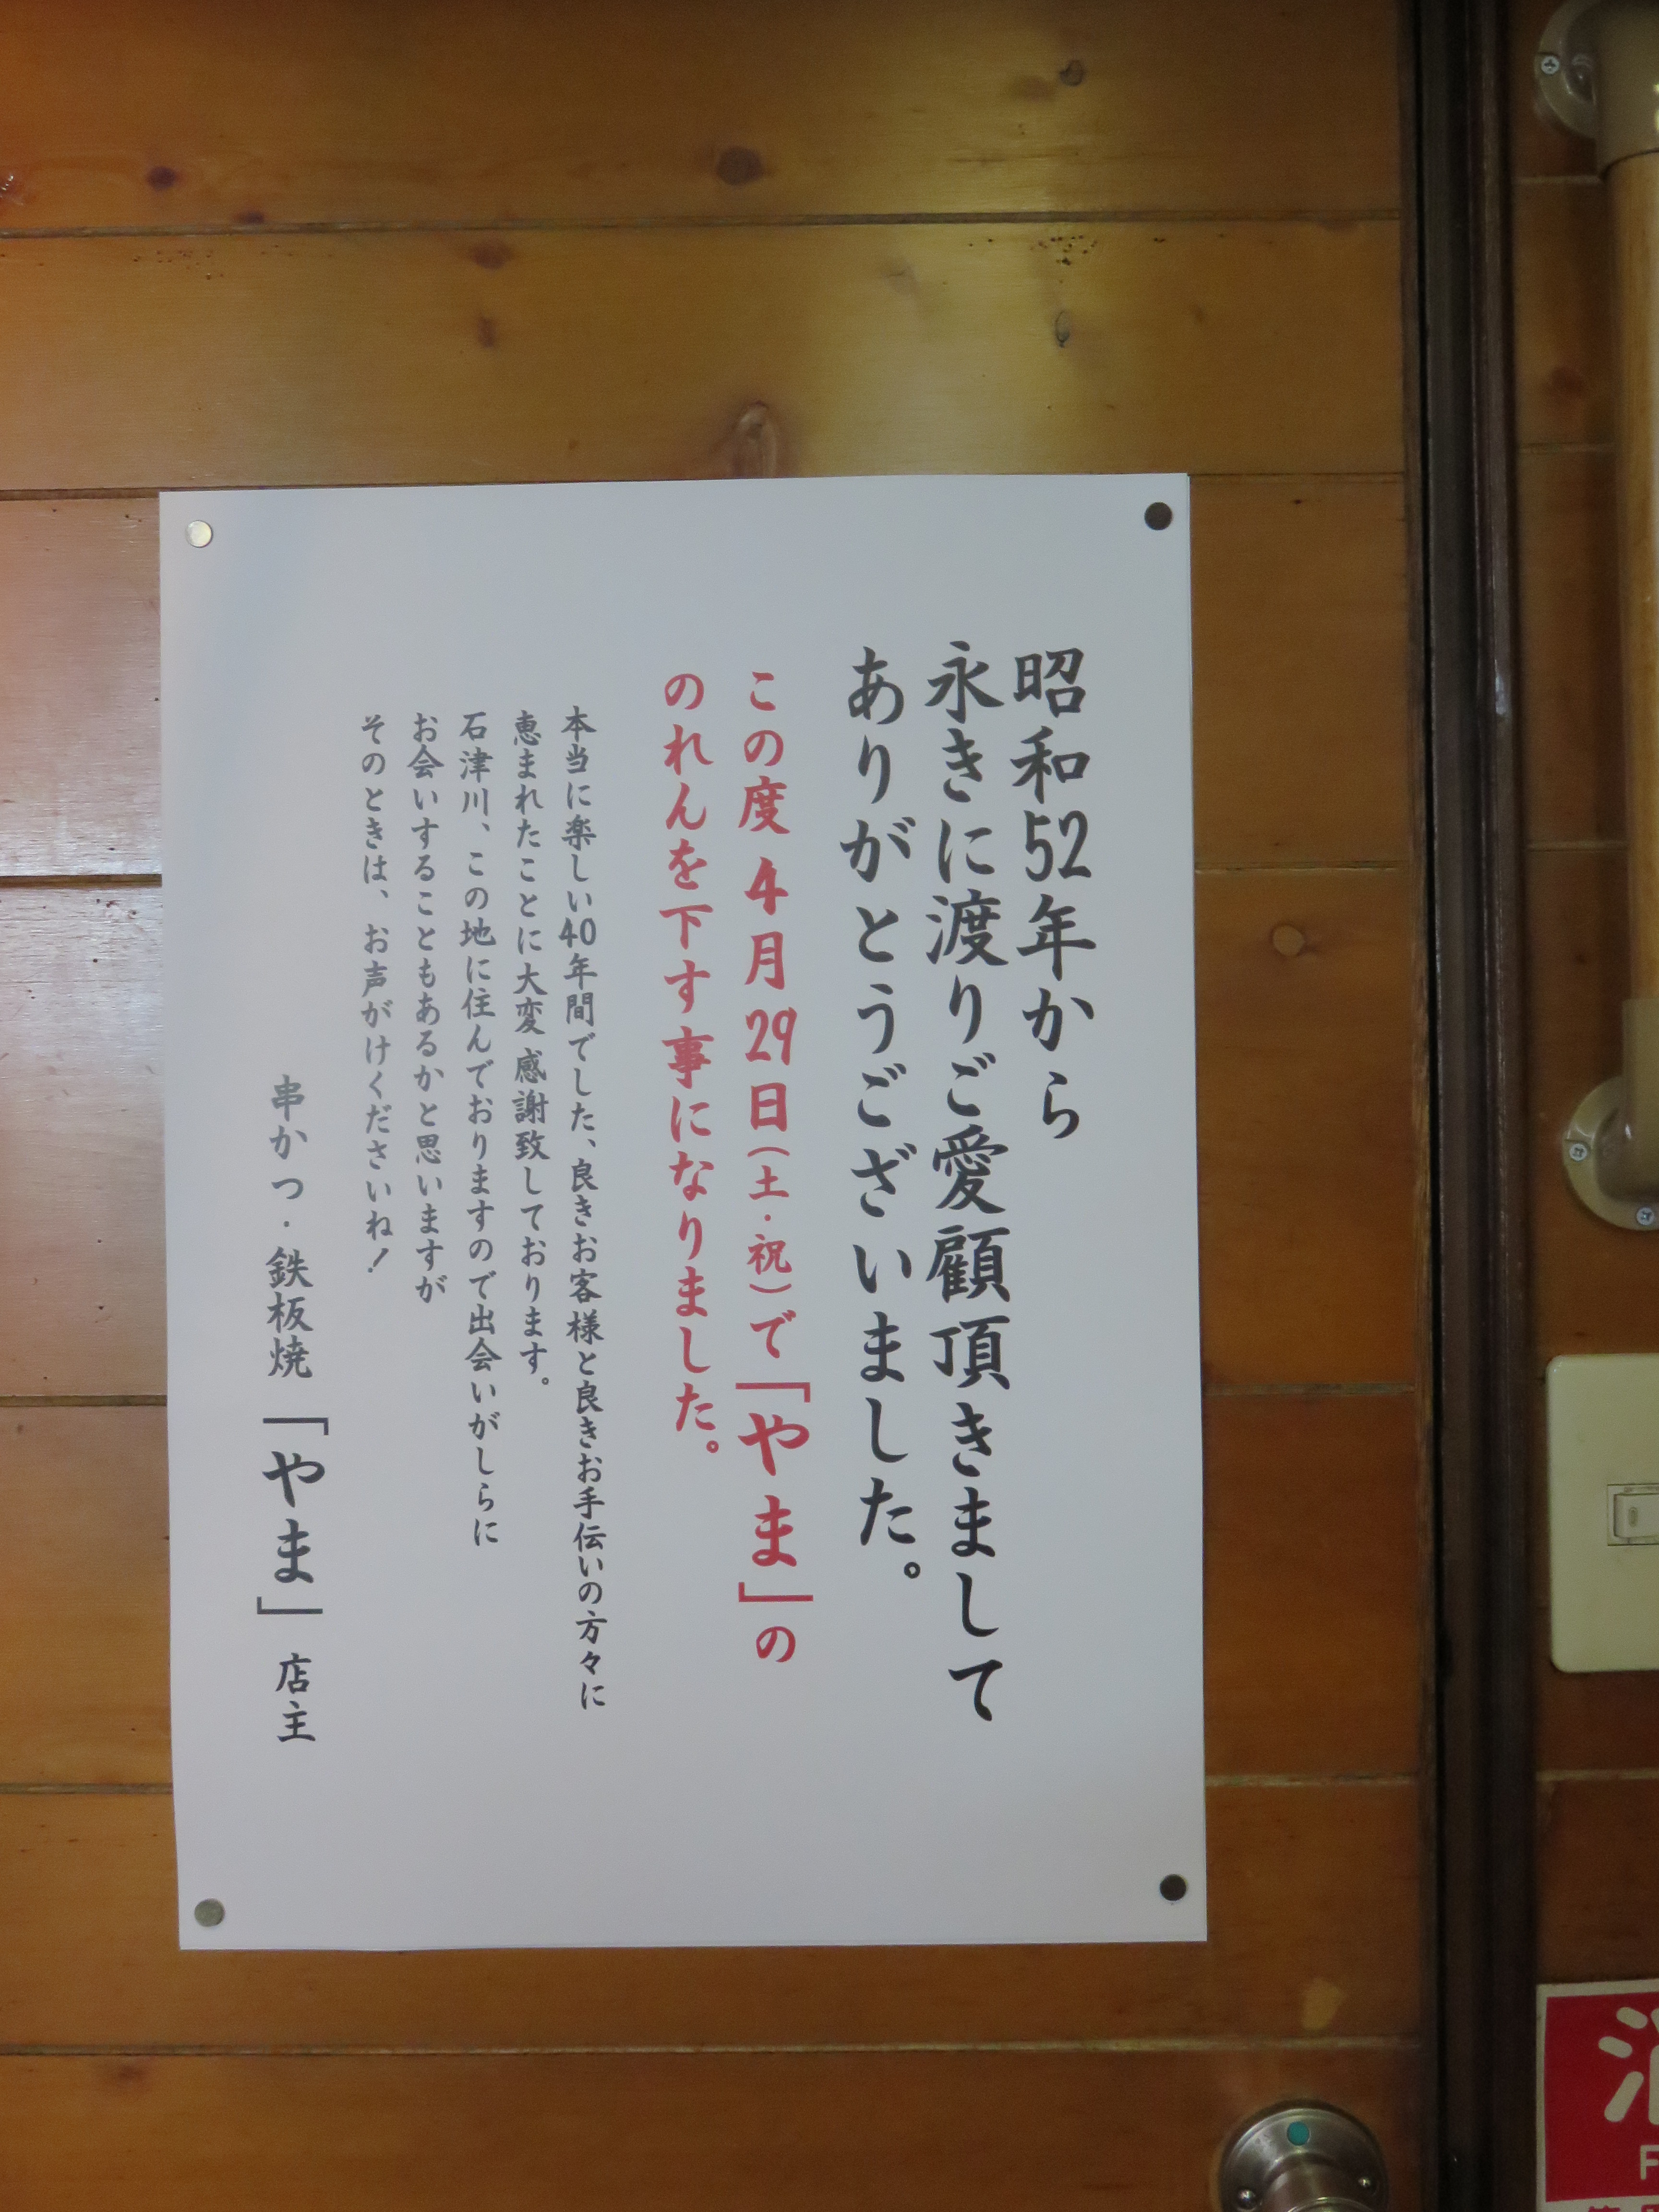 昭和52年から
永きに渡りご愛顧頂きまして
ありがとうございました。
この度4月29日(土・祝)で「やま」の
のれんを下す事になりました。
本当に楽しい40年間でした、良きお客様と良きお手伝いの方々に
恵まれたことに大変感謝致しております。
石津川、この地に住んでおりますので出会いがしらに
お会いすることもあるかと思いますが
そのときは、お声がけくださいね!
串かつ・鉄板焼「やま」店主
消
F